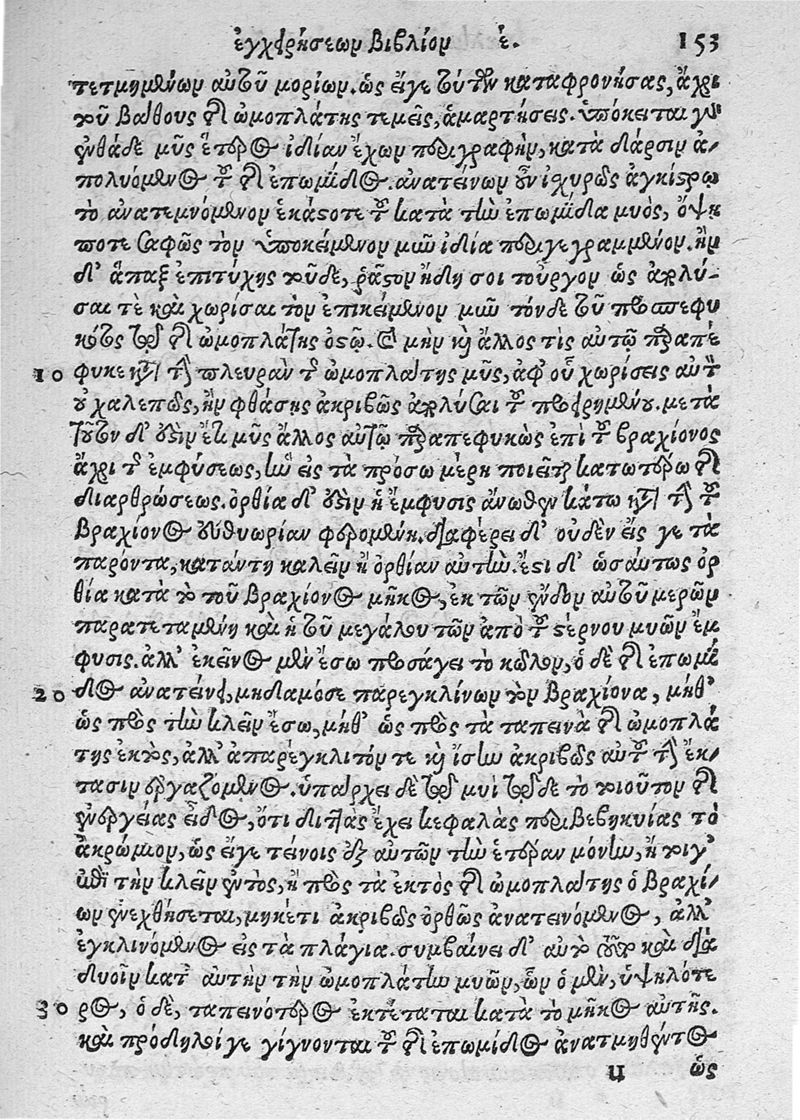 ἐγχειρήσεων βιβλίον έ. 153
τετμημένων αὐτοῦ μορίων. ὡς εἴγε τούτων καταφρονήσας, ἄχρι
τοῦ βάθους τῆς ὠμοπλάτης τεμεῖς, ἁμαρτήσεις. ὑπόκειται γὰρ
ἐνθάδε μῦς ἕτερος ἰδίαν ἔχων περιγραφὴν, κατὰ διάρσιν ἀ-
πολυόμενος τοῦ τῆς ἐπωμίδος. ἀνατείνων οὖν ἰσχυρῶς ἀγκίστρῳ
τὸ ἀνατεμνόμενον ἑκάστοτε τοῦ κατὰ τὴν ἐπωμίδα μυὸς, ὄψῃ
ποτε σαφῶς τὸν ὑποκείμενον μῦν ἰδία περιγεγραμμένον. ἢν
δ' ἅπαξ ἐπιτύχης τοῦδε, ῥᾷστον ἤδη σοι τοὖργον ὡς ἐκλύ-
σαι τὲ καὶ χωρίσαι τὸν ἐπικείμενον μῦν τόνδε τοῦ προσπεφυ
κότος τῷ τῆς ὠμοπλάτης ὀστῷ. καὶ μὴν καὶ ἄλλος τὶς αὐτῷ παραπέ
10 φυκε κατὰ τὴν πλευρὰν τῆς ὠμοπλάτης μῦς, ἀφ' οὗ χωρίσεις αὐτὸν
οὐ χαλεπῶς, ἢν φθάσης ἀκριβῶς ἐκλύσαι τοῦ προειρημένου. μετὰ
τοῦτον δ' οὐδὲν ἔτι μῦς ἄλλος αὐτῷ παραπεφυκὼς ἐπὶ τοῦ βραχίονος
ἄχρι τῆς ἐμφύσεως, ἣν εἰς τὰ πρόσω μέρη ποιεῖται κατωτέρω τῆς
διαρθρώσεως. ὀρθία δ' ἐστὶν ἡ ἔμφυσις ἄνωθεν κάτω κατὰ τὴν τοῦ
βραχίονος εὐθυωρίαν φερομένη. διαφέρει δ' οὐδὲν εἴς γε τὰ
παρόντα, κατάντη καλεῖν ἢ ὀρθίαν αὐτήν. ἔστι δ' ὡσαύτως ὀρ
θία κατὰ τὸ τοῦ βραχίονος μῆκος, ἐκ τῶν ἔνδον αὐτοῦ μερῶν
παρατεταμένη καὶ ἡ τοῦ μεγάλου τῶν ἀπὸ τοῦ στέρνου μυῶν ἔμ
φυσις. ἀλλ' ἐκεῖνος μὲν ἔσω προσάγει τὸ κῶλον, ὁ δὲ τῆς ἐπωμί
20 δος ἀνατείνει, μηδαμόσε παρεγκλίνων τὸν βραχίονα, μήθ'
ὡς πρὸς τὴν κλεῖν ἔσω, μήθ' ὡς πρὸς τὰ ταπεινὰ τῆς ὠμοπλά
της ἐκτὸς, ἀλλ' ἀπαρέγκλιτόν τε καὶ ἴσην ἀκριβῶς αὐτοῦ τὴν ἔκ-
τασιν ἐργαζόμενος. ὑπάρχει δὲ τῷ μυὶ τῷδε τὸ τοιοῦτον τῆς
ἐνεργείας εἶδος, ὅτι διττὰς ἔχει κεφαλὰς περιβεβηκυίας τὸ
ἀκρώμιον, ὡς εἴγε τείνοις ἐξ αὐτῶν τὴν ἑτέραν μόνην, ἤτοι γ'
ἐπὶ τὴν κλεῖν ἐντὸς, ἢ πρὸς τὰ ἐκτὸς τῆς ὠμοπλάτης ὁ βραχί-
ων ἐνεχθήσεται, μηκέτι ἀκριβῶς ὀρθῶς ἀνατεινόμενος, ἀλλ'
ἐγκλινόμενος εἰς τὰ πλάγια. συμβαίνει δ' αὐτὸ τοῦτο καὶ διὰ
δυοῖν κατ' αὐτὴν τὴν ὠμοπλάτην μυῶν, ὧν ὁ μὲν, ὑψηλότε
30 ρος, ὁ δὲ, ταπεινότερος ἐκτέταται κατὰ τὸ μῆκος αὐτῆς.
καὶ πρόδηλοί γε γίγνονται τοῦ τῆς ἐπωμίδος ἀνατμηθέντος
u ὡς